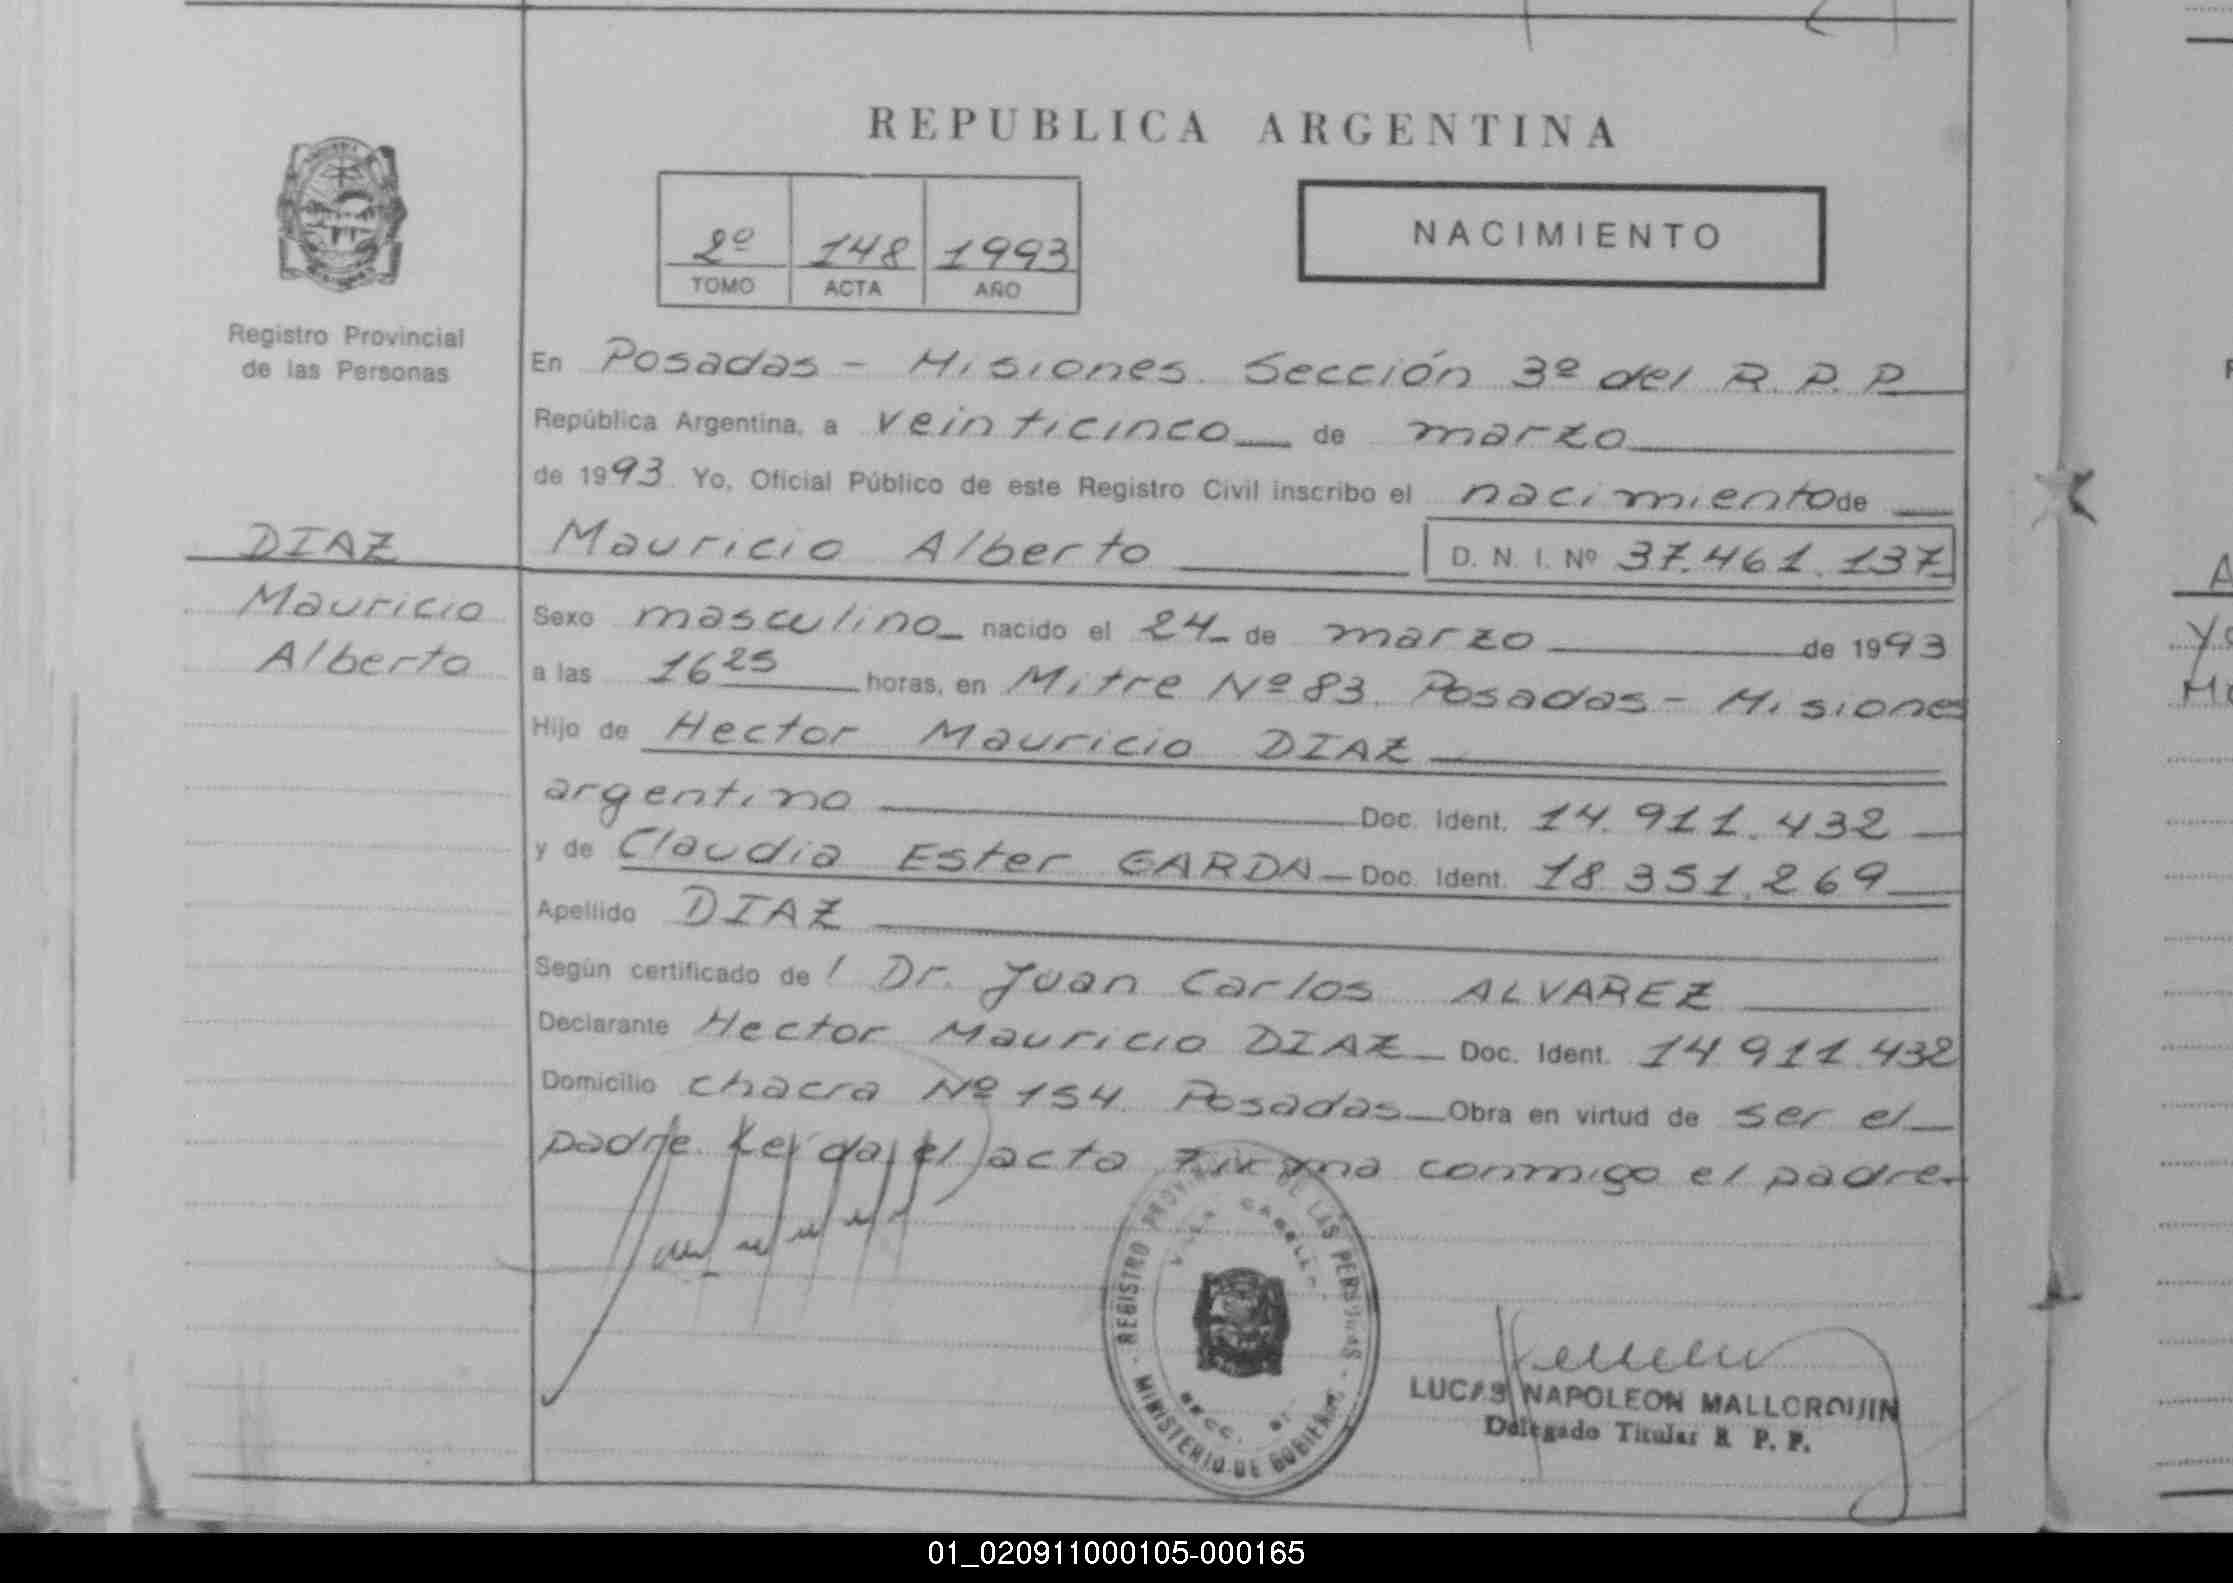 REPUBLICA ARGENTINA
2º 148 1993
TOMO ACTA AÑO
NACIMIENTO
Registro Provincial
de las Personas
En Posadas - Misiones. Sección 3º del R. P. P.
República Argentina, a veinticinco de marzo
de 1993 Yo, Oficial Público de este Registro Civil inscribo el nacimiento de
DIAZ
Mauricio
Alberto
Mauricio Alberto D. N. I. Nº 37.461.137
Sexo masculino nacido el 24 de marzo de 1993
a las 16 25 horas, en Mitre Nº 83. Posadas - Misiones
Hijo de Hector Mauricio DIAZ
argentino Doc. Ident. 14.911.432
y de Claudia Ester GARDA Doc. Ident. 18.351.269
Apellido DIAZ
Según certificado de / Dr. Juan Carlos ALVAREZ
Declarante Hector Mauricio DIAZ Doc. Ident. 14.911.432
Domicilio chacra Nº 154. Posadas Obra en virtud de ser el
padre. Leida el acta firma conmigo el padre.
REGISTRO PROVINCIAL DE LAS PERSONAS - MINISTERIO DE GOBIERNO -
VILLA CABELLO
LUCAS NAPOLEON MALLORQUIN
Delegado Titular R. P. P.
01_020911000105-000165